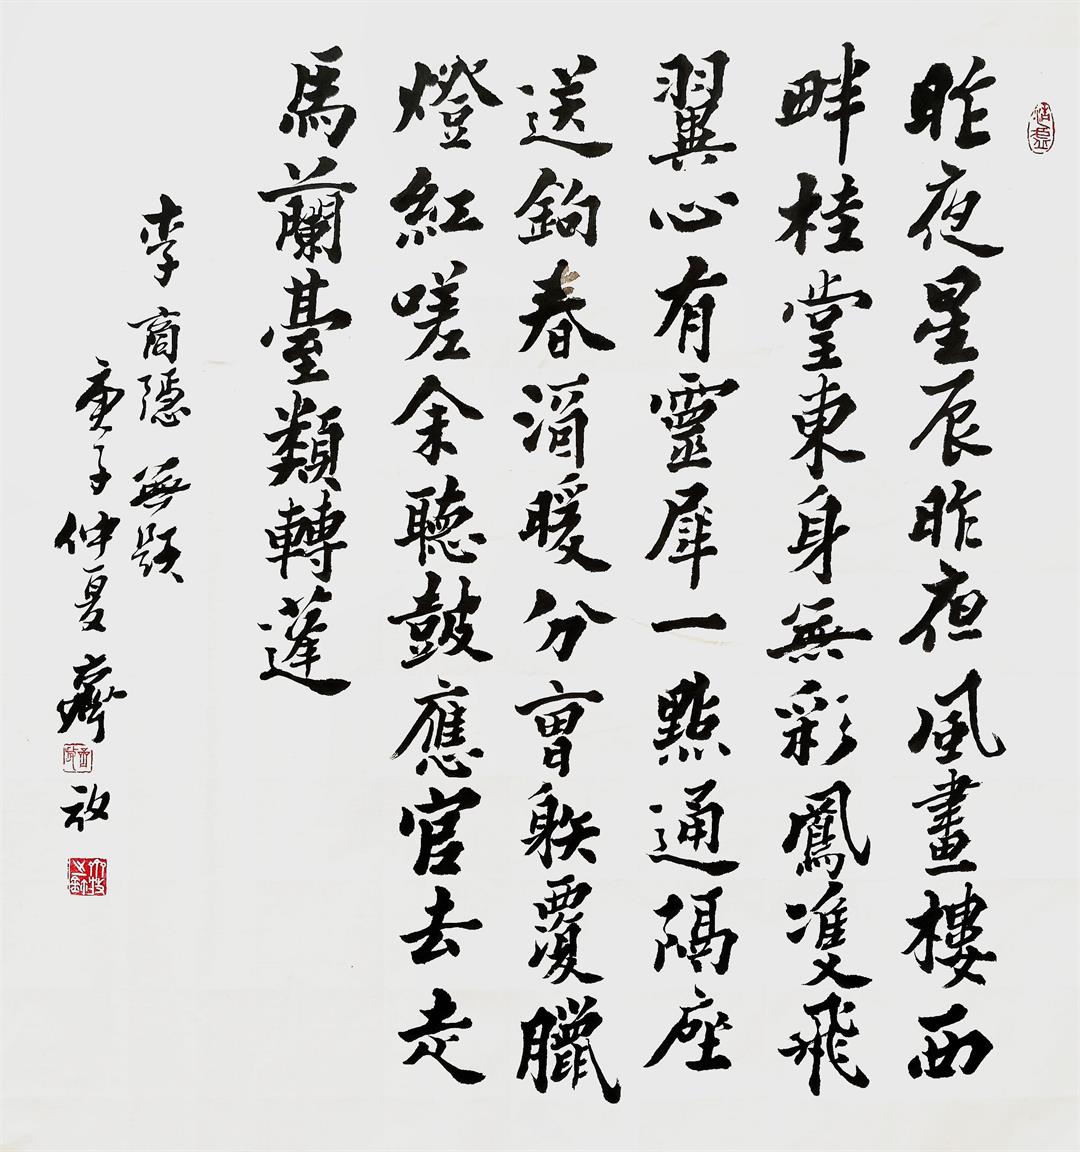 昨夜星辰昨夜風畫樓西
畔桂堂東身無彩鳳雙飛
翼心有靈犀一點通隔座
送鉤春酒暖分曹射覆臘
燈紅嗟余聽鼓應官去走
馬蘭臺類轉蓬
李商隱無題
庚子仲夏齊